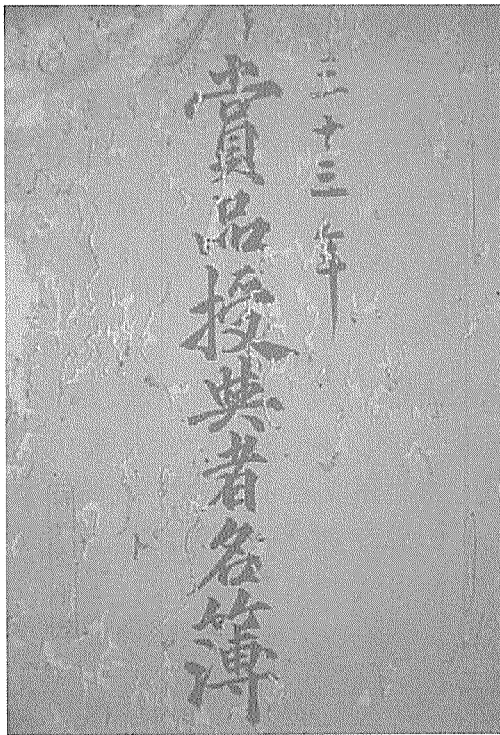 三十三年
賞品授與者名簿